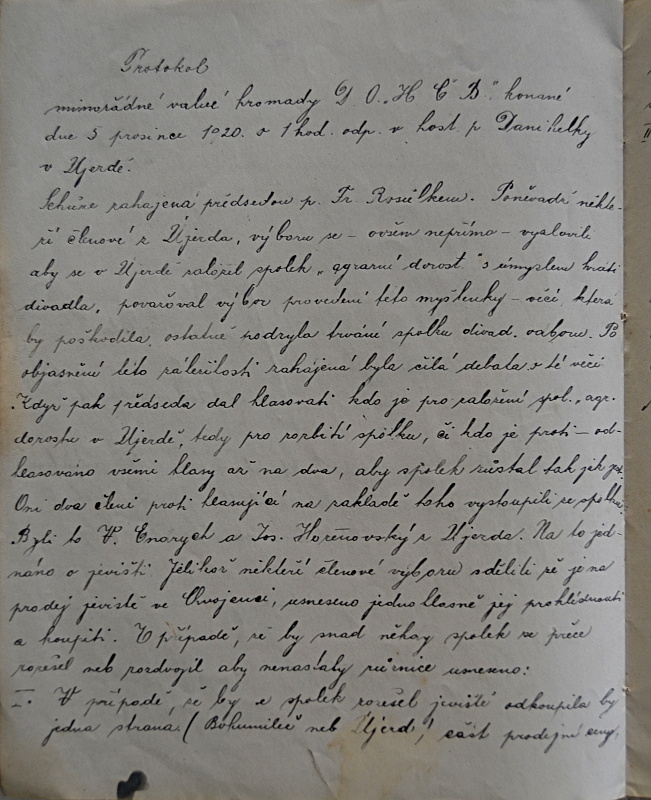 Protokol
mimořádné valné hromady D. O. „H Č B". konané
dne 5 prosince 1920. o 1 hod. odp. v host. p. Danihelky
v Újerdě.
Schůze zahájena předsedou p. Fr. Rosůlkem. Poněvadž někte-
ří členové z Újezda, výboru se – ovšem nepřímo – vyslovili
aby se v Újezdě založil spolek „agrární dorost" s úmyslem hráti
divadla, považoval výbor provedení této myšlenky – věcí, která
by poškodila, ostatně podryla trvání spolku divad. odboru. Po
objasnění této záležitosti zahájená byla čilá debata o té věci
Když pak předseda dal hlasovati kdo je pro založení spol. „agr.
dorostu v Újezdě, tedy pro rozbití spolku, či kdo je proti – od-
hlasováno všemi hlasy až na dva, aby spolek zůstal tak jak jest.
Oni dva členi proti hlasující na základě toho vystoupili ze spolku.
Byli to V. a Jos. Hořeňovský z Újezda. Na to jed-
náno o jevišti. Jelikož někteří členové výboru sdělili že je na
prodej jeviště ve Chvojenci, usneseno jednohlasně jej prohlédnouti
a koupiti. V případě, že by snad někdy spolek se přece
rozešel neb rozdvojil aby nenastaly různice usneseno:
I. V případě, že by se spolek rozešel jeviště odkoupila by
jedna strana (Bohumileč neb Újezd) část prodejní ceny,